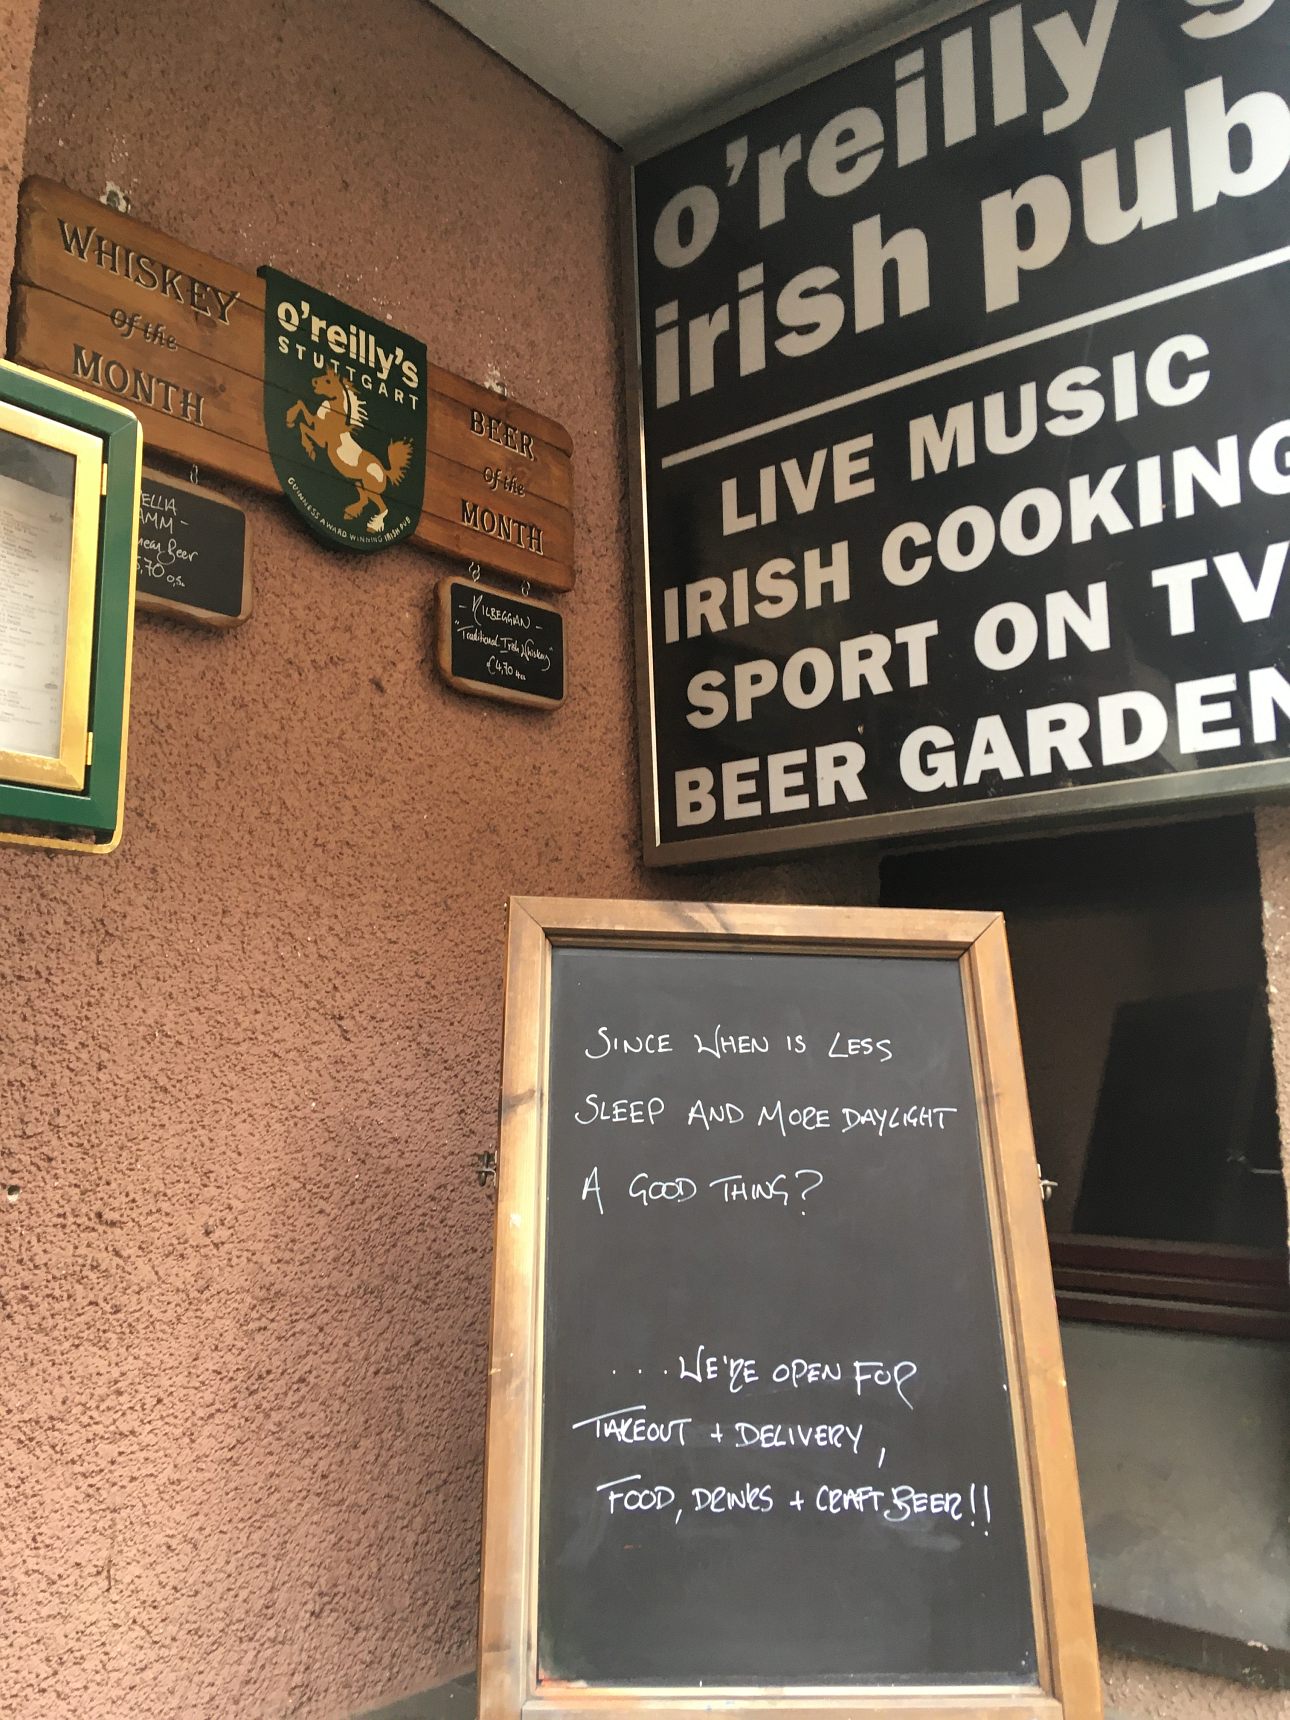 o'reilly's
irish pub
LIVE MUSIC
IRISH COOKING
SPORT ON TV
BEER GARDEN
WHISKEY
of the
MONTH
o'reilly's
STUTTGART
GUINNESS AWARD WINNING IRISH PUB
BEER
of the
MONTH
ELLIA
AMM -
Beer
5,70
- KILBEGGIAN -
"Traditional Irish Whiskey"
€4,70
SINCE WHEN IS LESS
SLEEP AND MORE DAYLIGHT
A GOOD THING?
. . . . WE'RE OPEN FOR
TAKEOUT + DELIVERY,
FOOD, DRINKS + CRAFT BEER!!